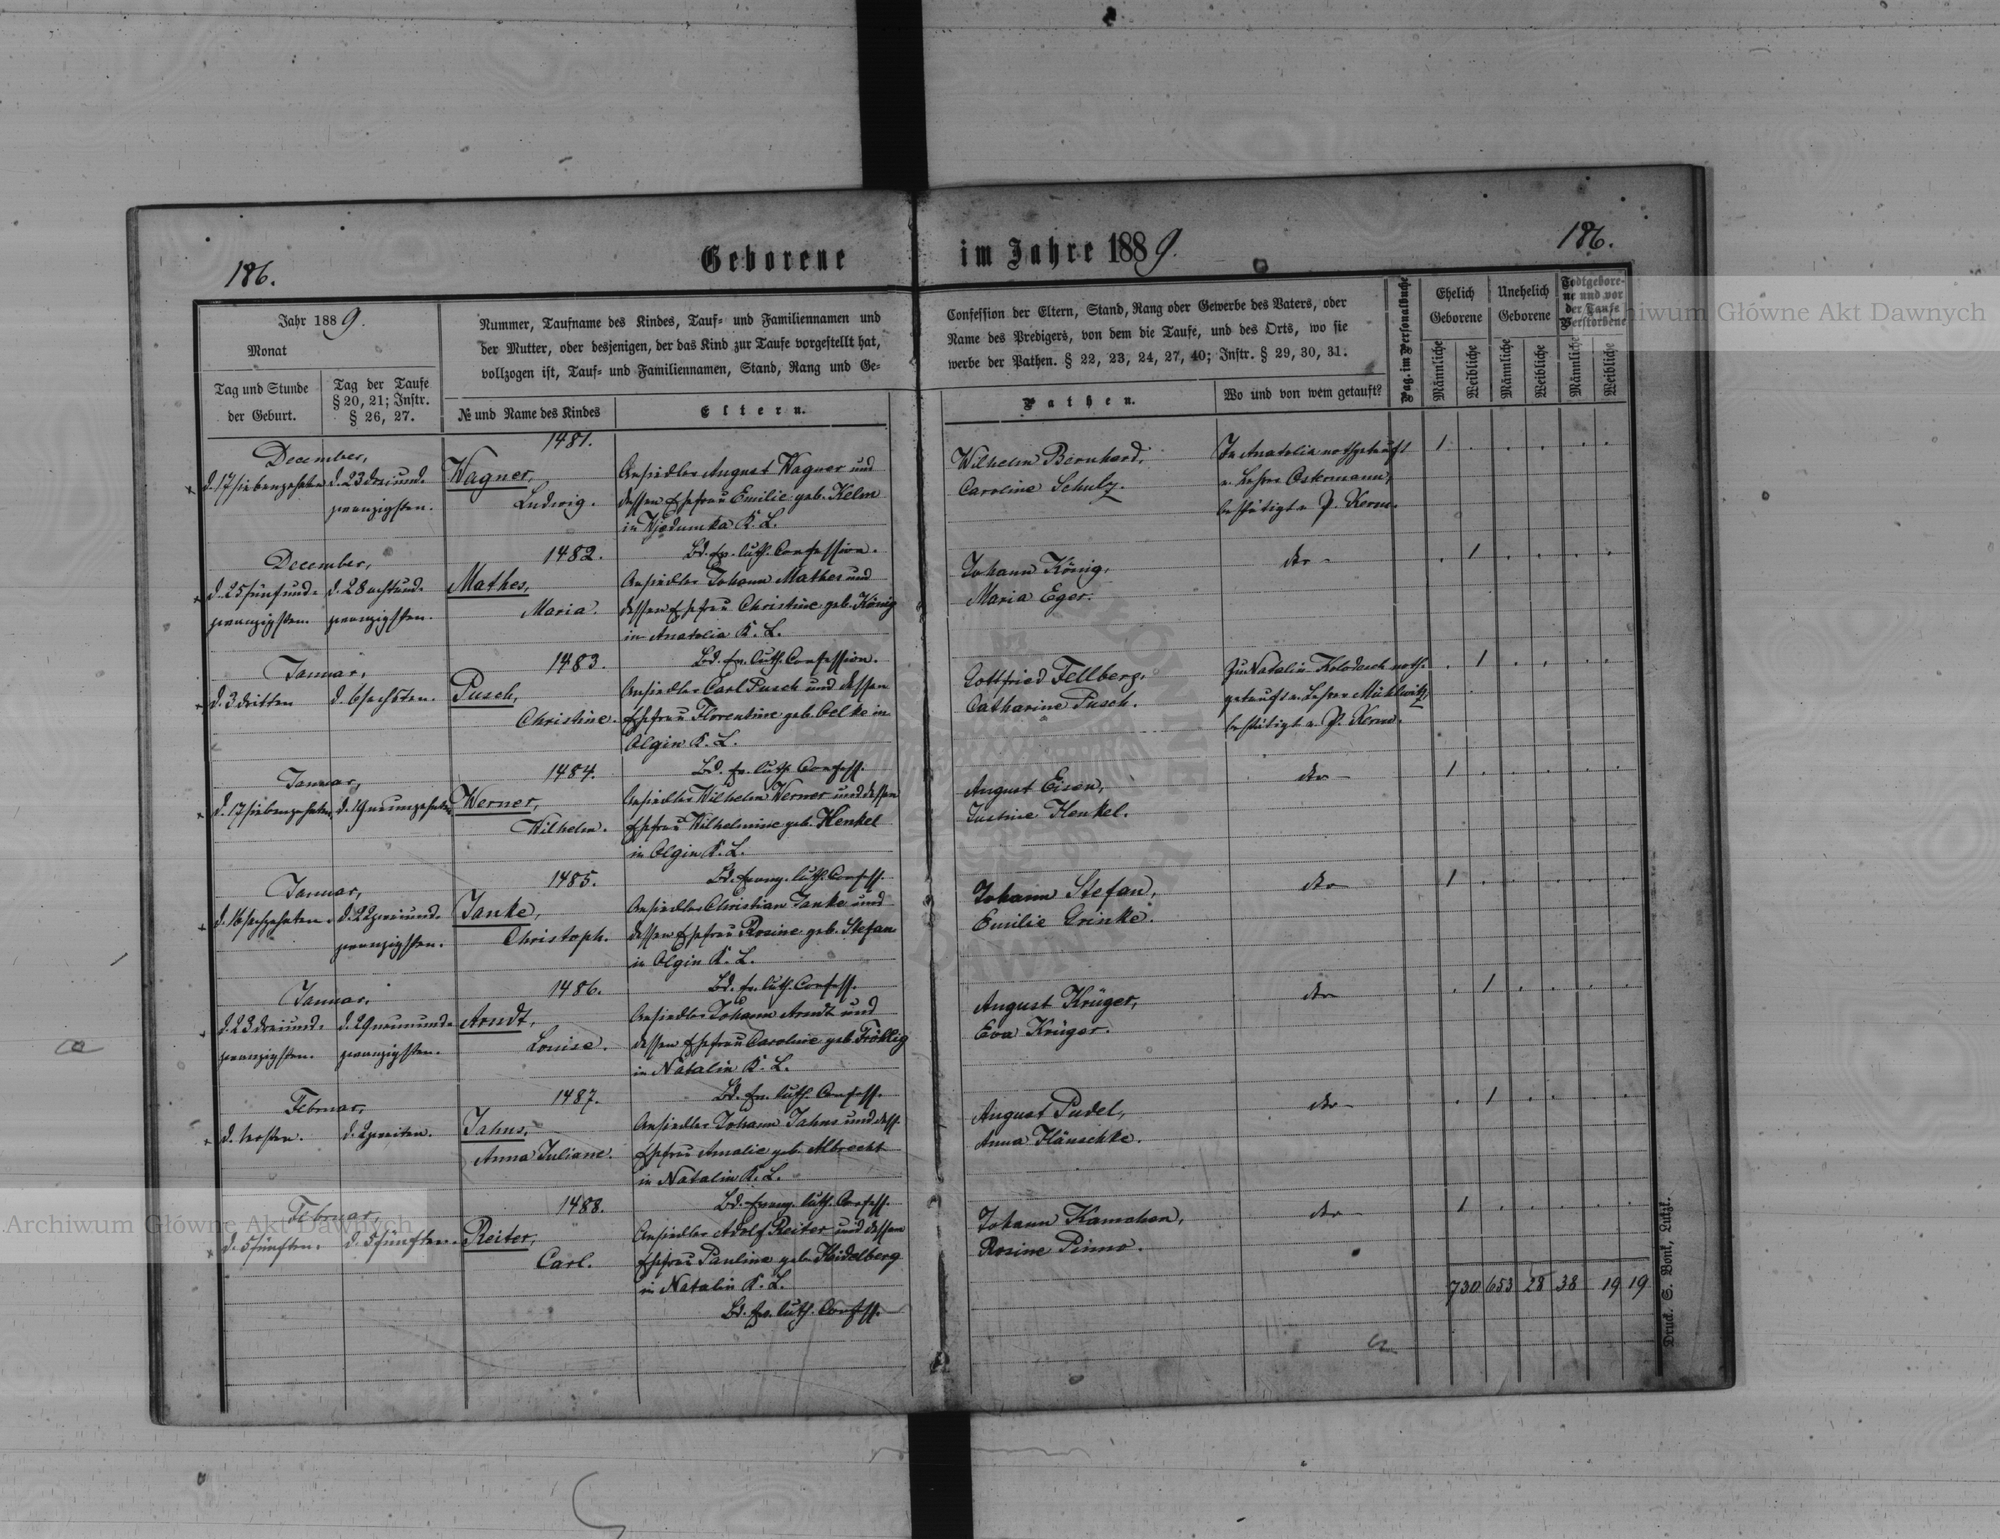 186.
Geborene im Jahre 1889.
186.
Jahr 1889.
Monat
Tag und Stunde der Geburt.
Tag der Taufe § 20, 21; Instr. § 26, 27.
Nummer, Taufname des Kindes, Tauf- und Familiennamen und
der Mutter, oder desjenigen, der das Kind zur Taufe vorgestellt hat,
vollzogen ist, Tauf- und Familiennamen, Stand, Rang und Ge-
№ und Name des Kindes
Eltern.
Confession der Eltern, Stand, Rang oder Gewerbe des Vaters, oder
Name des Predigers, von dem die Taufe, und des Orts, wo sie
werbe der Pathen. § 22, 23, 24, 27, 40; Instr. § 29, 30, 31.
Pathen.
Wo und von wem getauft?
Pag. im Personalbuche
Ehelich Geborene
Unehelich Geborene
Todtgeborene und vor der Taufe Verstorbene
Männliche
Weibliche
Männliche
Weibliche
Männliche
Weibliche
1481.
December,
d. 17 siebenzehnten d. 23 dreiund-
zwanzigsten.
Wagner,
Ludwig.
Ansiedler August Wagner und
dessen Ehefrau Emilie geb. Kelm
in K. L.
Bd. ev. luth. Confession.
Wilhelm Bernhard,
Caroline Schulz.
In Anatolia nothgetauft
v. Lehrer Ostermann,
bestätigt v. P. Kerm.
1
1482.
December,
d. 25 fünfund- d. 28 achtund-
zwanzigsten. zwanzigsten.
Mathes,
Maria.
Ansiedler Johann Mathes und
dessen Ehefrau Christine geb. König
in Anatolia K. L.
Bd. ev. luth. Confession.
Johann König,
Maria Eger.
dto
1
1483.
Januar,
d. 3 dritten d. 6 sechsten.
Pusch,
Christine.
Ansiedler Carl Pusch und dessen
Ehefrau Florentine geb. Oelke in
Olgin K. L.
Bd. ev. luth. Confess.
Gottfried Fellberg,
Catharine Pusch.
Natalin noth-
getauft v. Lehrer
bestätigt v. P. Kerm.
1
1484.
Januar,
d. 17 siebenzehnten d. 19 neunzehnten
Werner,
Wilhelm.
Ansiedler Wilhelm Werner und dessen
Ehefrau Wilhelmine geb. Henkel
in Olgin K. L.
Bd. evang. luth. Confess.
August Eisen,
Justine Henkel.
dto
1
1485.
Januar,
d. 16 sechzehnten d. 22 zweiund-
zwanzigsten.
Janke,
Christoph.
Ansiedler Christian Janke und
dessen Ehefrau Rosine geb. Stefan
in Olgin K. L.
Bd. ev. luth. Confess.
Johann Stefan,
Emilie Grinke.
dto
1
1486.
Januar,
d. 23 dreiund- d. 29 neunund-
zwanzigsten. zwanzigsten.
Arndt,
Louise.
Ansiedler Johann Arndt und
dessen Ehefrau Caroline geb. Fröhlig
in Natalin K. L.
Bd. ev. luth. Confess.
August Krüger,
Eva Krüger.
dto
1
1487.
Februar,
d. 1 ersten. d. 2 zweiten.
Jahns,
Anna Juliane.
Ansiedler Johann Jahns und dess.
Ehefrau Amalie geb. Albrecht
in Natalin K. L.
Bd. evang. luth. Confess.
August Pudel,
Anna Hänschke.
dto
1
1488.
Februar,
d. 5 fünften. d. 5 fünften.
Reiter,
Carl.
Ansiedler Adolf Reiter und dessen
Ehefrau Pauline geb. Heidelberg
in Natalin K. L.
Bd. ev. luth. Confess.
Johann Kamahen,
Rosine Pinno.
dto
1
730 653 28 38 19 19
Druck. S. Bonk, Lutzk.
Archiwum Główne Akt Dawnych
Archiwum Główne Akt Dawnych